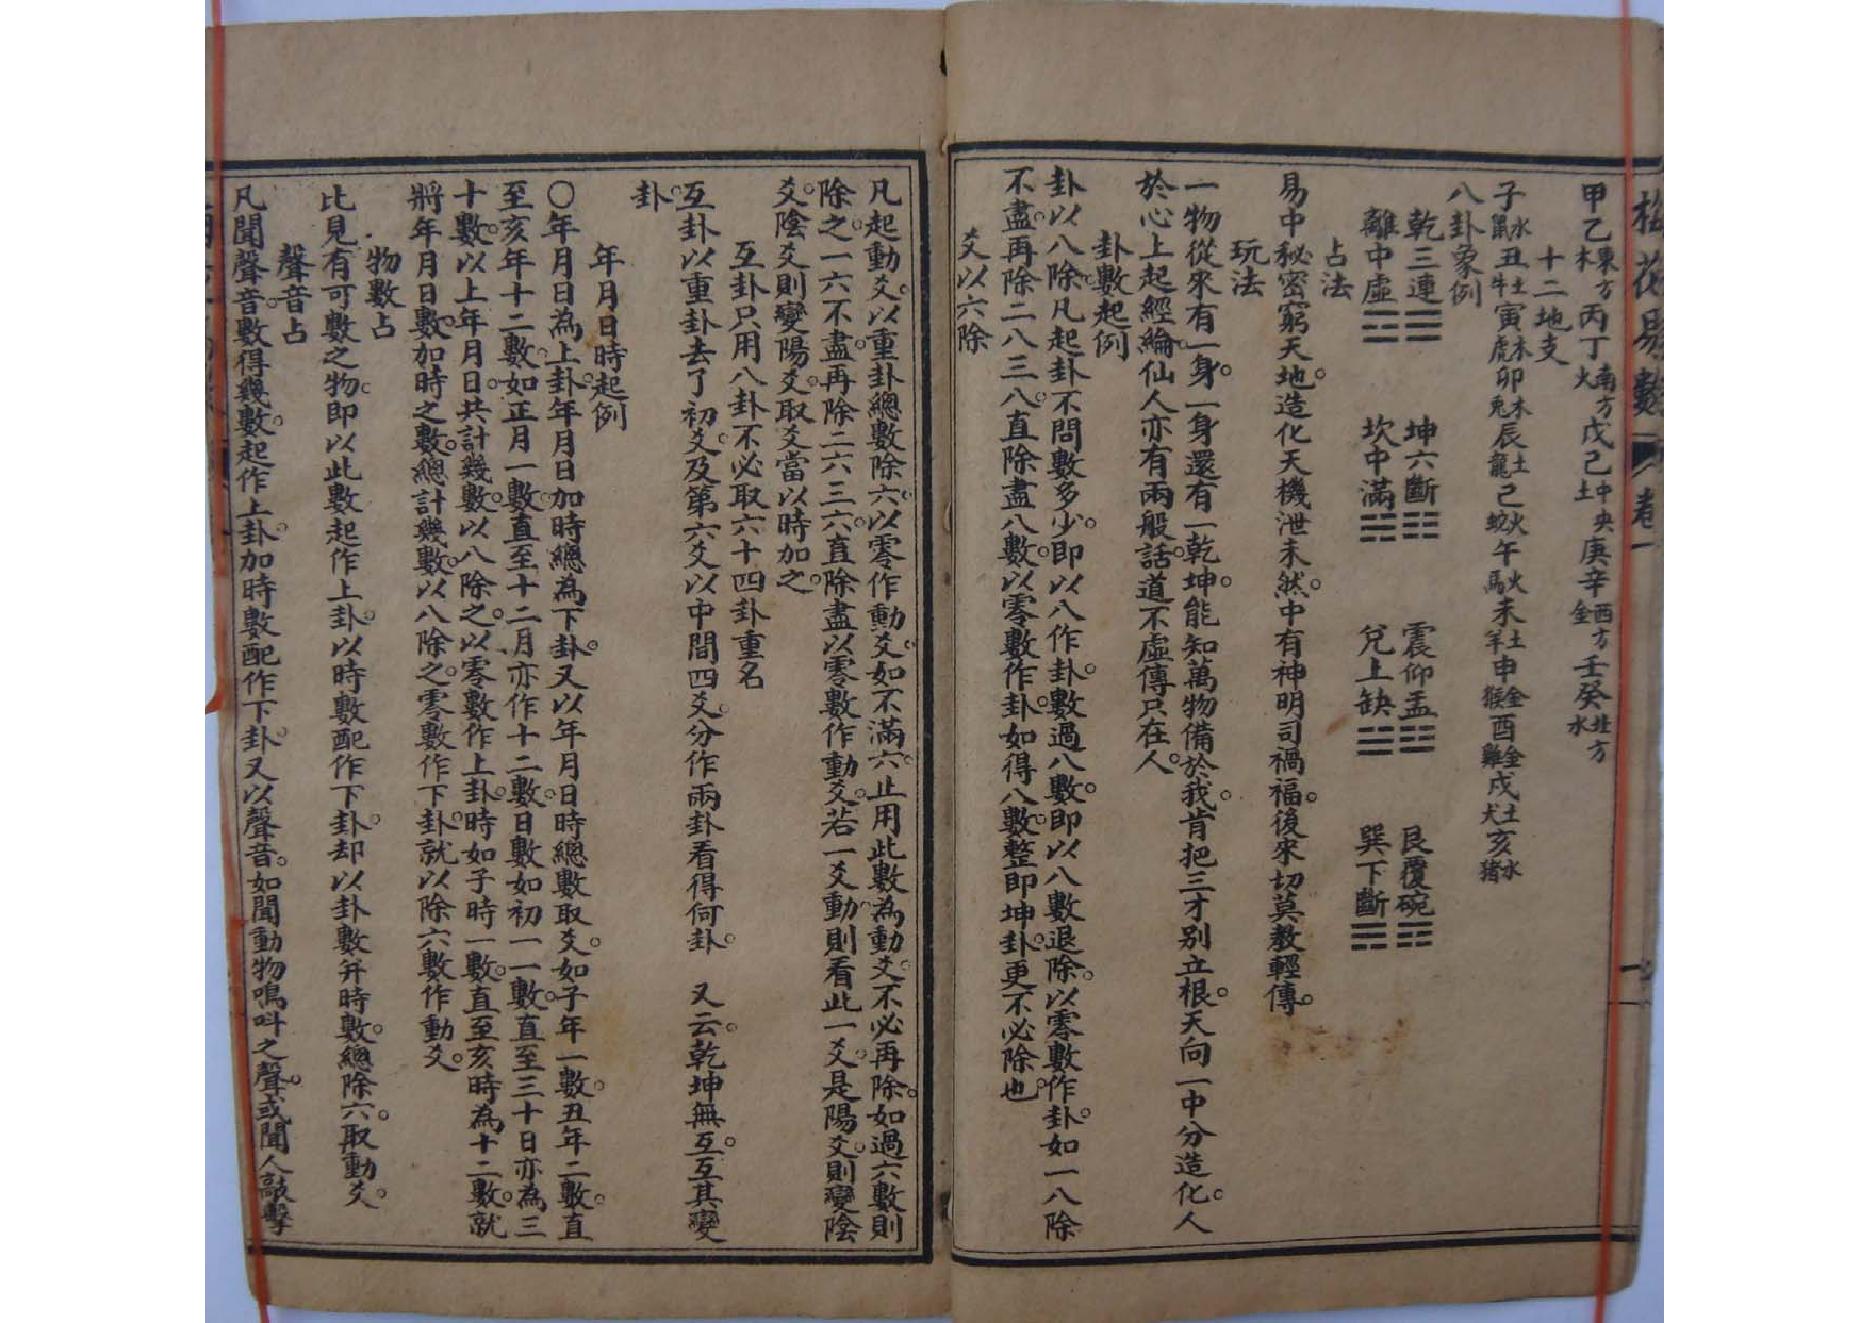 梅花易數 卷一
甲乙東方木 丙丁南方火 戊己中央土 庚辛西方金 壬癸北方水
十二地支
子水鼠丑土牛寅木虎卯木兔辰土龍巳火蛇午火馬未土羊申金猴酉金雞戌土犬亥水豬
八卦象例
乾三連☰ 坤六斷☷ 震仰盂☳ 艮覆碗☶
離中虛☲ 坎中滿☵ 兌上缺☱ 巽下斷☴
占法
易中秘密窮天地。造化天機泄未然。中有神明司禍福。後來切莫教輕傳。
玩法
一物從來有一身。一身還有一乾坤。能知萬物備於我。肯把三才別立根。天向一中分造化。人
於心上起經綸。仙人亦有兩般話。道不虛傳只在人。
卦數起例
卦以八除。凡起卦不問數多少。即以八作卦。數過八數。即以八數退除。以零數作卦。如一八除
不盡。再除二八三八。直除盡八數。以零數作卦。如得八數。整即坤卦。更不必除也。
爻以六除
凡起動爻。以重卦總數除六。以零作動爻。如不滿六。止用此數為動爻。不必再除。如過六數則
除之。一六不盡。再除二六三六。直除盡以零數作動爻。若一爻動。則看此一爻。是陽爻。則變陰
爻。陰爻則變陽爻。取爻當以時加之。
互卦只用八卦不必取六十四卦重名
互卦以重卦去了初爻。及第六爻以中間四爻。分作兩卦看得何卦。 又云。乾坤無互。互其變
卦。
年月日時起例
〇年月日為上卦。年月日加時總為下卦。又以年月日時總數取爻。如子年一數。丑年二數。直
至亥年十二數。如正月一數。直至十二月。亦作十二數。日數如初一一數。直至三十日亦為三
十數。以上年月日。共計幾數。以八除之。以零數作上卦。時如子時一數。直至亥時為十二數。就
將年月日數。加時之數。總計幾數。以八除之。零數作下卦。就以除六數作動爻。
物數占
比見有可數之物。即以此數起作上卦。以時數配作下卦。却以卦數并時數。總除六。取動爻。
聲音占
凡聞聲音。數得幾數。起作上卦。加時數配作下卦。又以聲音。如聞動物鳴叫之聲。或聞人敲擊